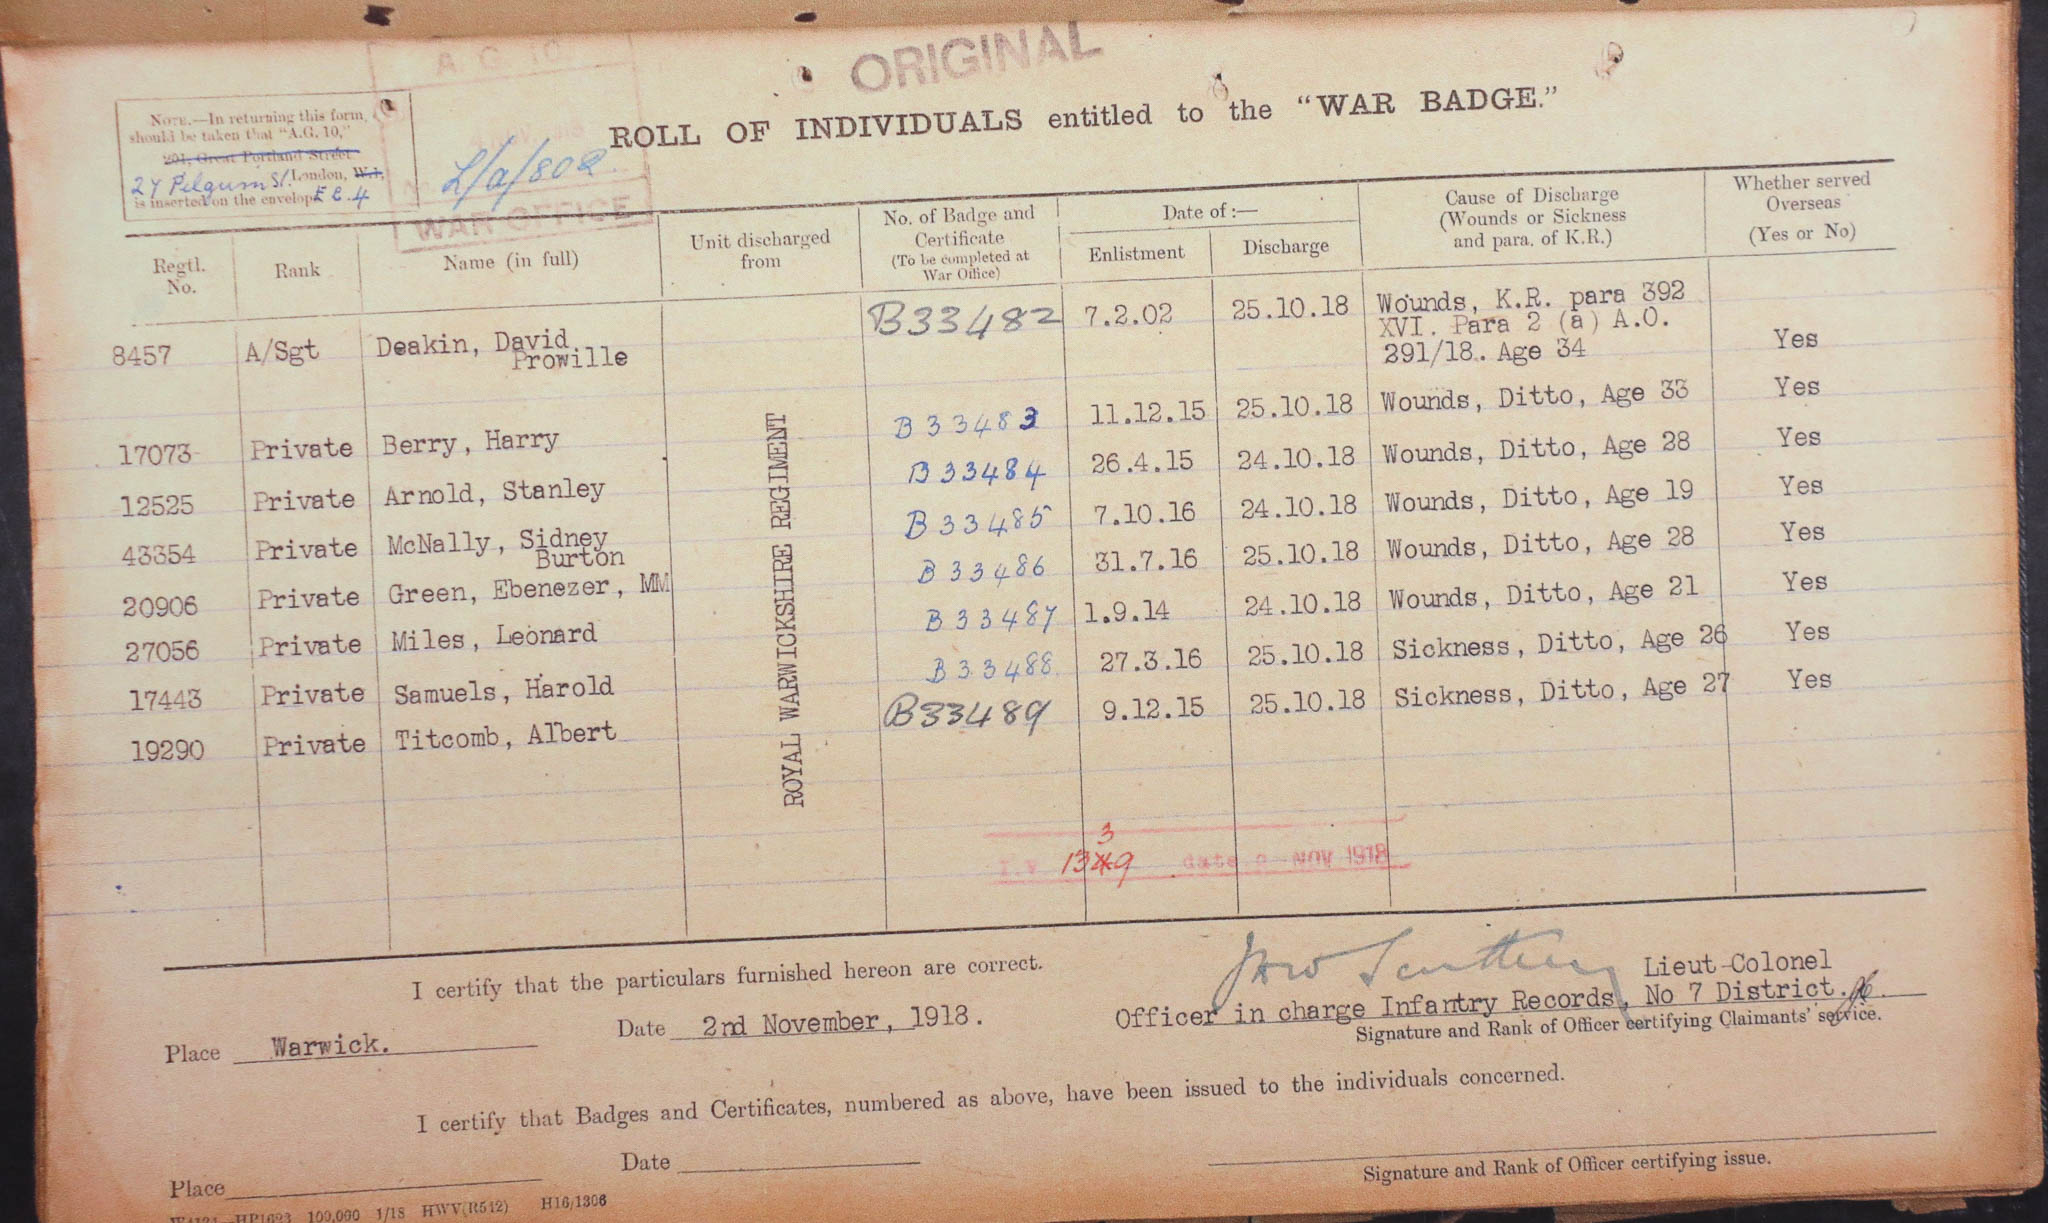 ORIGINAL
A. G. 10.
NOTE.—In returning this form,
should be taken that "A.G. 10,"
201, Great Portland Street
27 Pelgrim St. London, W.1,
is inserted on the envelope E C. 4
L/a/802
WAR OFFICE
ROLL OF INDIVIDUALS entitled to the "WAR BADGE."
Regtl. No. | Rank | Name (in full) | Unit discharged from | No. of Badge and Certificate (To be completed at War Office) | Date of :— Enlistment | Discharge | Cause of Discharge (Wounds or Sickness and para. of K.R.) | Whether served Overseas (Yes or No)
8457 A/Sgt Deakin, David Prowille B33482 7.2.02 25.10.18 Wounds, K.R. para 392 XVI. Para 2 (a) A.O. 291/18. Age 34 Yes
17073 Private Berry, Harry B33483 11.12.15 25.10.18 Wounds, Ditto, Age 33 Yes
12525 Private Arnold, Stanley B33484 26.4.15 24.10.18 Wounds, Ditto, Age 28 Yes
43354 Private McNally, Sidney Burton B33485 7.10.16 24.10.18 Wounds, Ditto, Age 19 Yes
20906 Private Green, Ebenezer, MM B33486 31.7.16 25.10.18 Wounds, Ditto, Age 28 Yes
27056 Private Miles, Leonard B33487 1.9.14 24.10.18 Wounds, Ditto, Age 21 Yes
17443 Private Samuels, Harold B33488 27.3.16 25.10.18 Sickness, Ditto, Age 26 Yes
19290 Private Titcomb, Albert B33489 9.12.15 25.10.18 Sickness, Ditto, Age 27 Yes
ROYAL WARWICKSHIRE REGIMENT
3
1349 date 2 NOV 1918
I certify that the particulars furnished hereon are correct.
Lieut-Colonel
Officer in charge Infantry Records, No 7 District.
Signature and Rank of Officer certifying Claimants' service.
Place Warwick. Date 2nd November, 1918.
I certify that Badges and Certificates, numbered as above, have been issued to the individuals concerned.
Place Date
Signature and Rank of Officer certifying issue.
100,000 1/18 HWV(R512) H16/1306